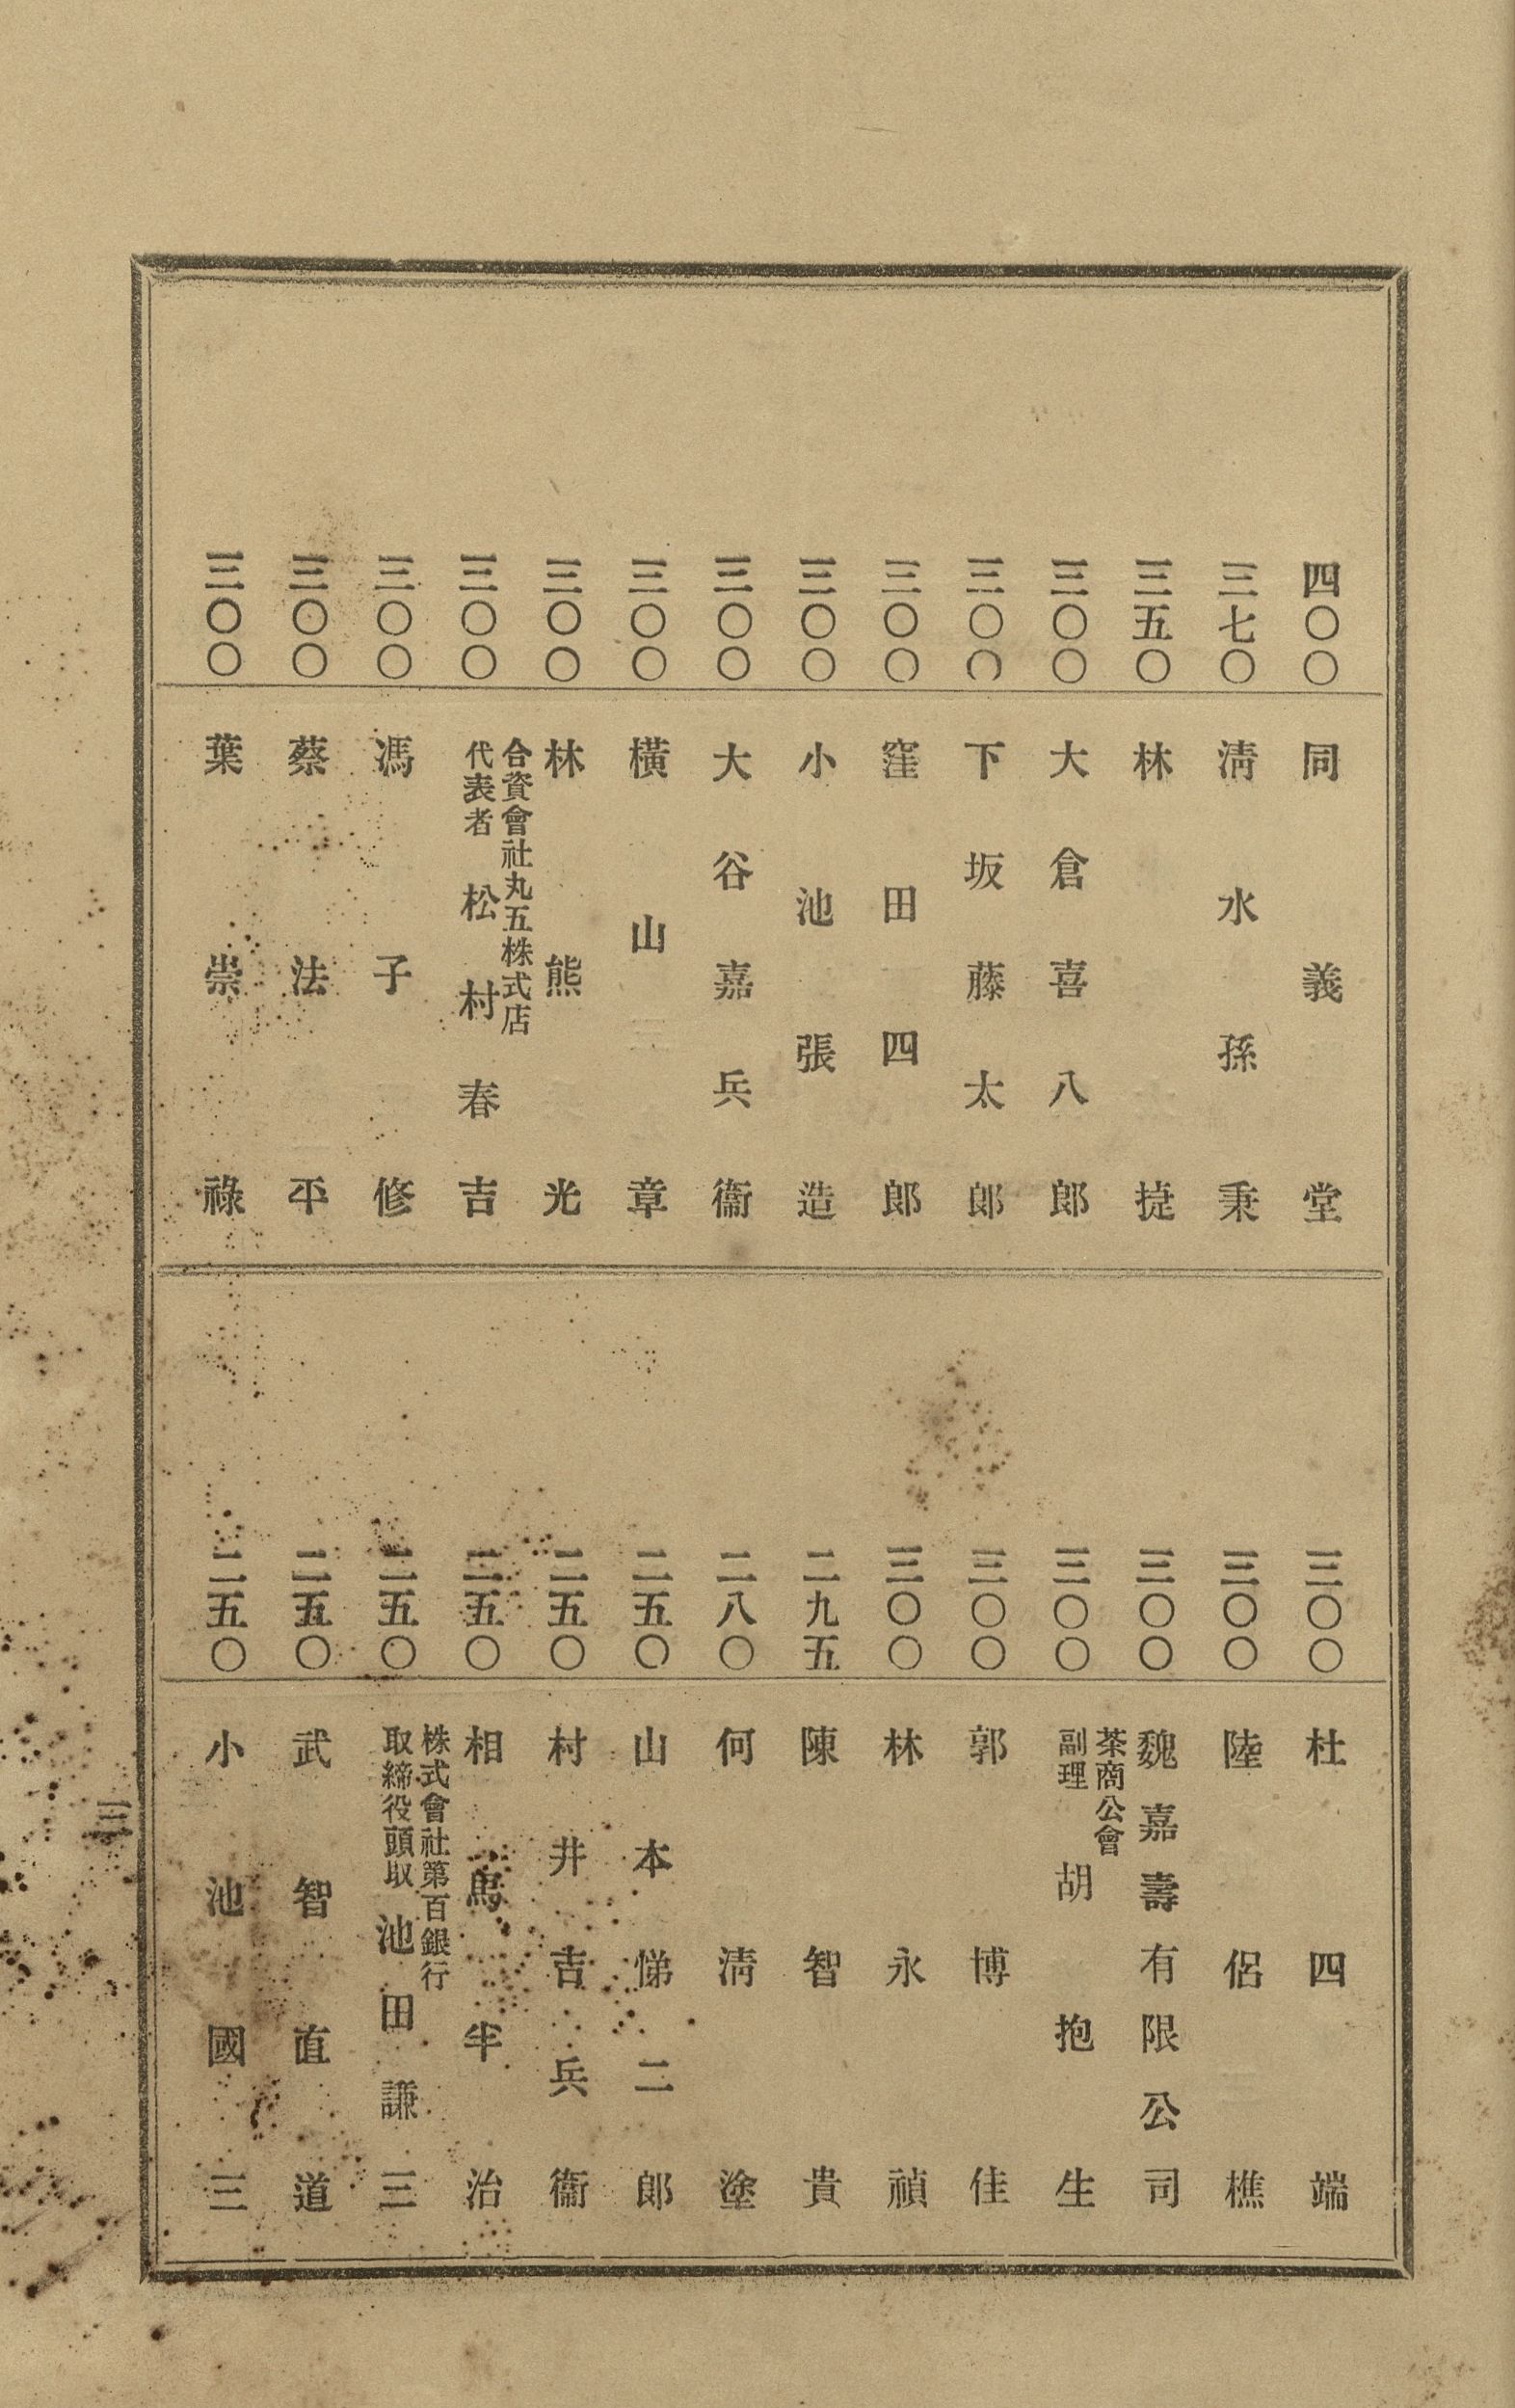 四〇〇 同義堂
三七〇 淸水孫秉
三五〇 林捷
三〇〇 大倉喜八郎
三〇〇 下坂藤太郎
三〇〇 窪田四郎
三〇〇 小池張造
三〇〇 大谷嘉兵衞
三〇〇 橫山三章
三〇〇 林熊光
三〇〇 合資會社丸五株式店
代表者 松村春吉
三〇〇 馮子修
三〇〇 蔡法平
三〇〇 葉崇祿
三〇〇 杜四端
三〇〇 陸侶樵
三〇〇 魏嘉壽有限公司
三〇〇 茶商公會
副理 胡抱生
三〇〇 郭博佳
三〇〇 林永禎
二九五 陳智貴
二八〇 何淸塗
二五〇 山本悌二郎
二五〇 村井吉兵衞
二五〇 相馬半治
二五〇 株式會社第百銀行
取締役頭取 池田謙三
二五〇 武智直道
二五〇 小池國三
三